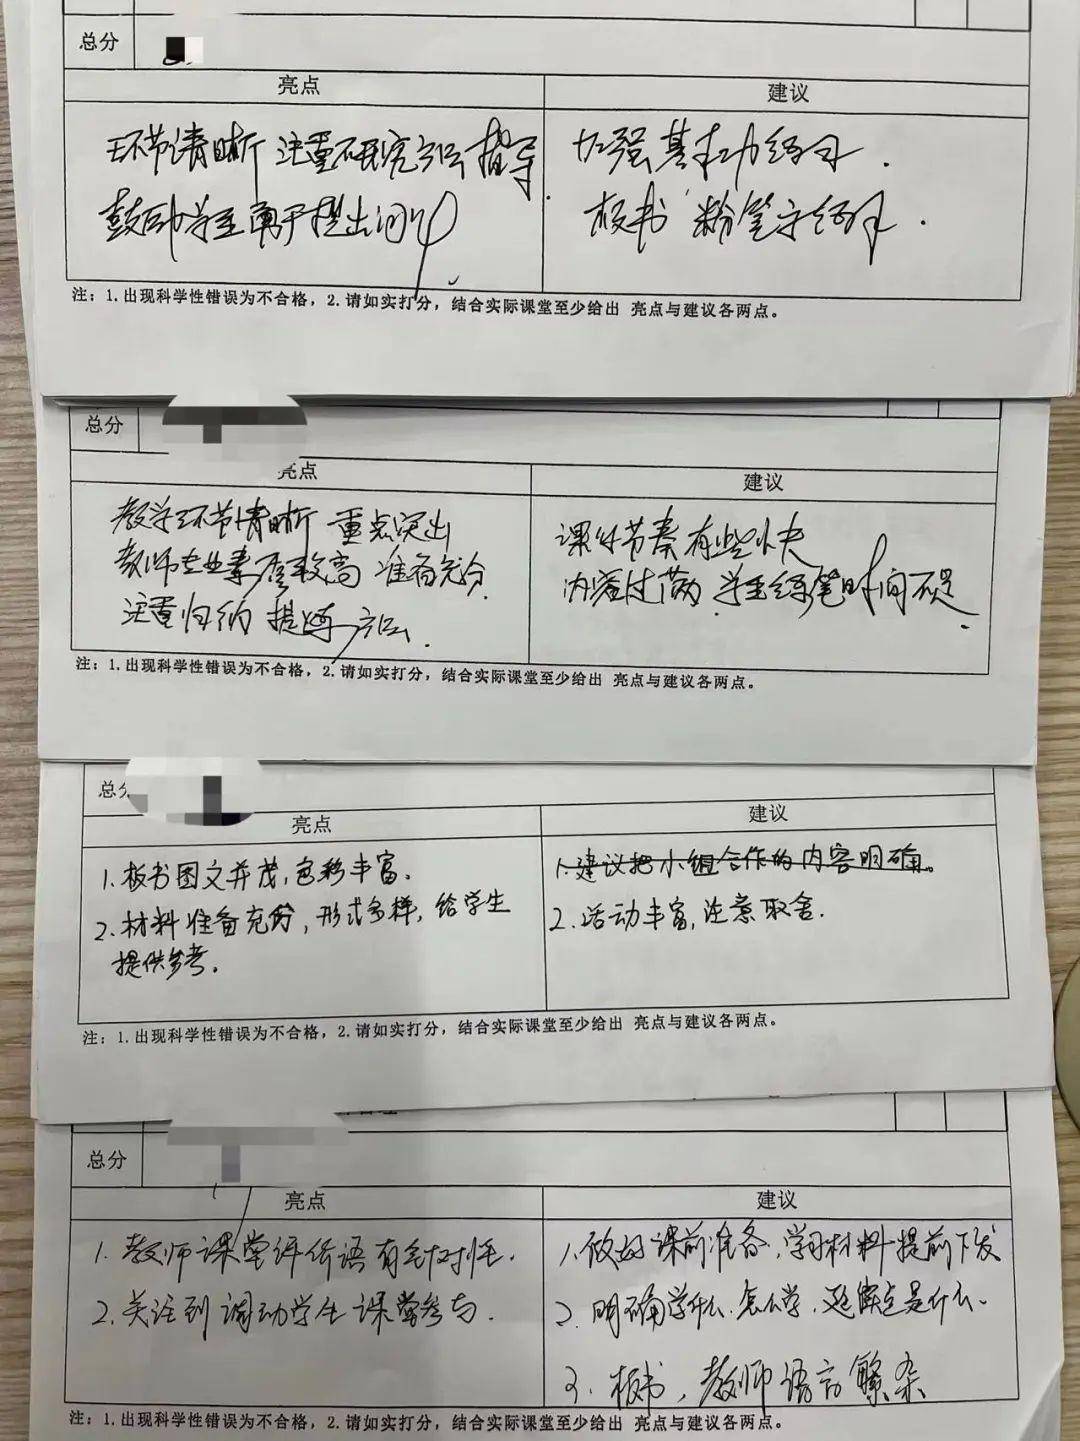 总分
亮点 建议
环节清晰 注重研究方法指导. 加强基本功练习.
鼓励学生勇于提出问 板书 粉笔字练习.
注：1.出现科学性错误为不合格，2.请如实打分，结合实际课堂至少给出 亮点与建议各两点。
总分
亮点 建议
教学环节清晰 重点突出 课件节奏有些快
教师专业素养较高 准备充分. 内容过满 学生练笔时间不足.
注重归纳 提炼方法.
注：1.出现科学性错误为不合格，2.请如实打分，结合实际课堂至少给出 亮点与建议各两点。
总分
亮点 建议
1.板书图文并茂,色彩丰富. 1.建议把小组合作的内容明确。
2.材料准备充分,形式多样,给学生 2.活动丰富,注意取舍.
提供参考.
注：1.出现科学性错误为不合格，2.请如实打分，结合实际课堂至少给出 亮点与建议各两点。
总分
亮点 建议
1.教师课堂评价语有针对性. 1.做好课前准备,学习材料提前下发
2.关注到调动学生课堂参与. 2.明确学什么.怎么学,延伸点是什么.
3.板书,教师语言繁杂
注：1.出现科学性错误为不合格，2.请如实打分，结合实际课堂至少给出 亮点与建议各两点。